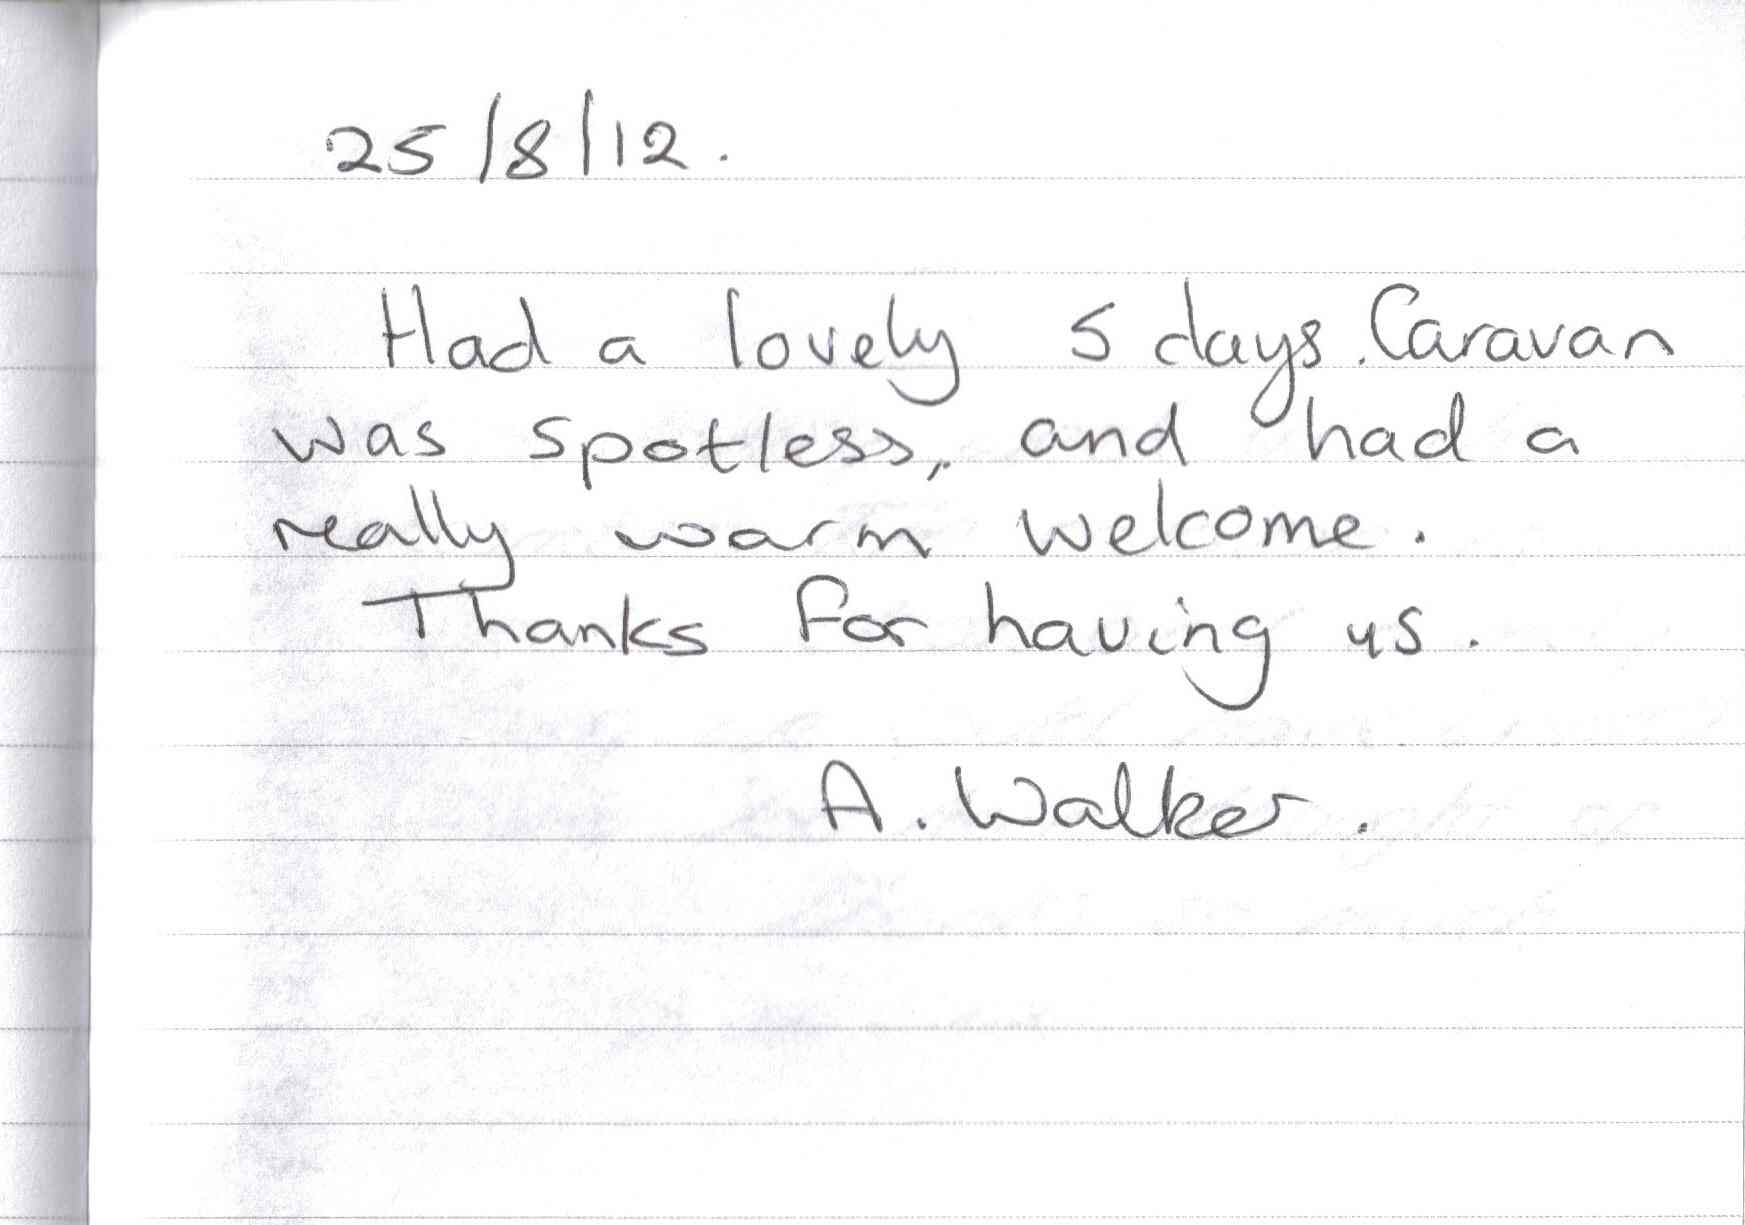 25/8/12.
Had a lovely 5 days. Caravan
was spotless, and had a
really warm welcome.
Thanks for having us.
A. Walker.